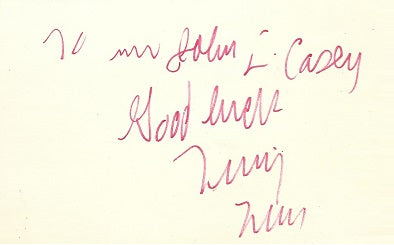 To mr John L. Casey
Good luck